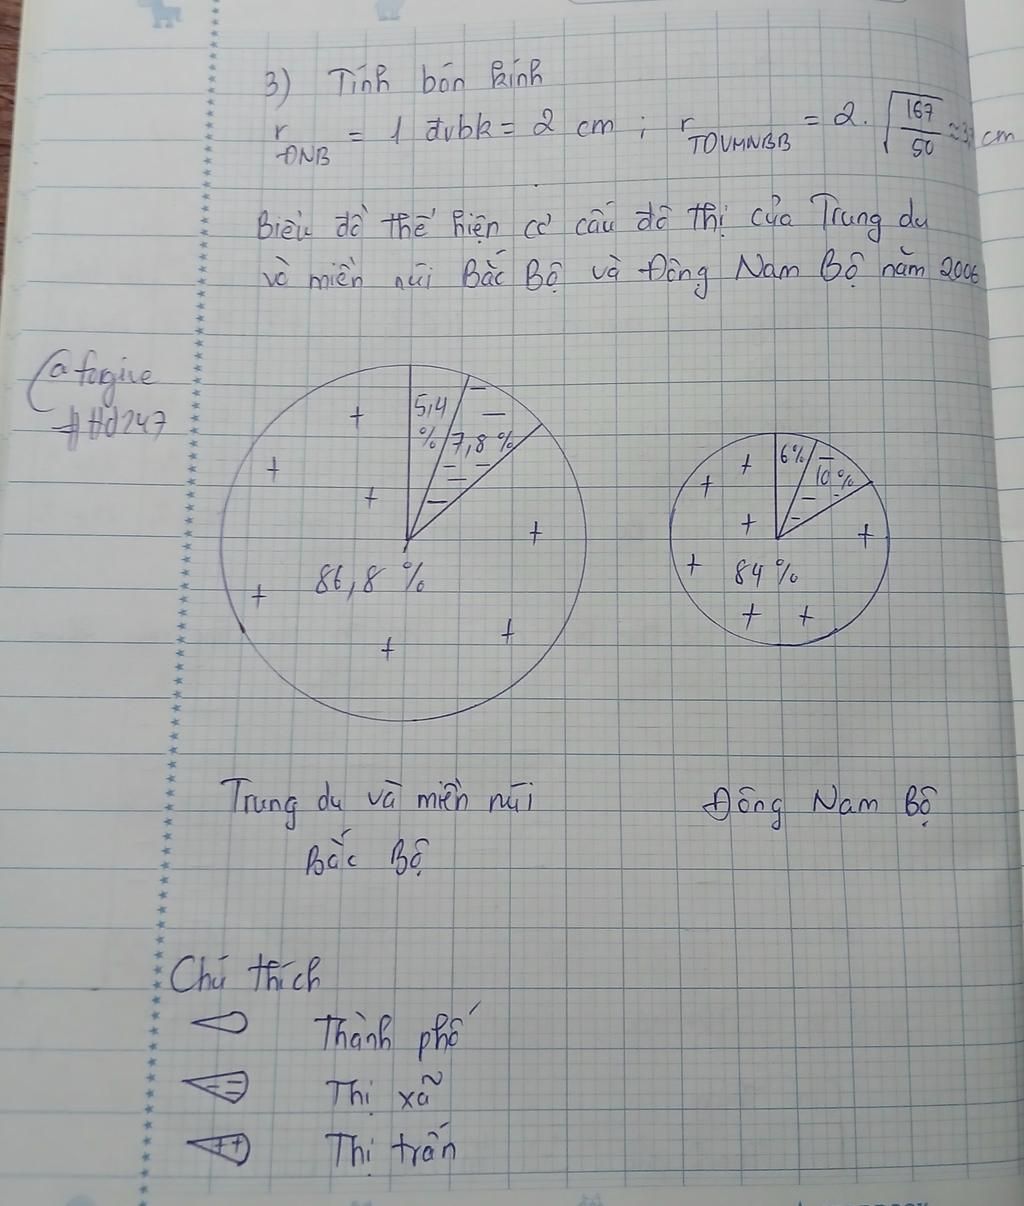 3) Tính bán kính
r ĐNB = 1 đvbk = 2 cm ; r TDVMNBB = 2. √167/50 ≈ 3, cm
Biểu đồ thể hiện cơ cấu đô thị của Trung du
và miền núi Bắc Bộ và Đông Nam Bộ năm 2006
@forgive
##d247
5,4
%
7,8 %
86,8 %
6%
10 %
84 %
Trung du và miền núi
Bắc Bộ
Đông Nam Bộ
Chú thích
Thành phố
Thị xã
Thị trấn